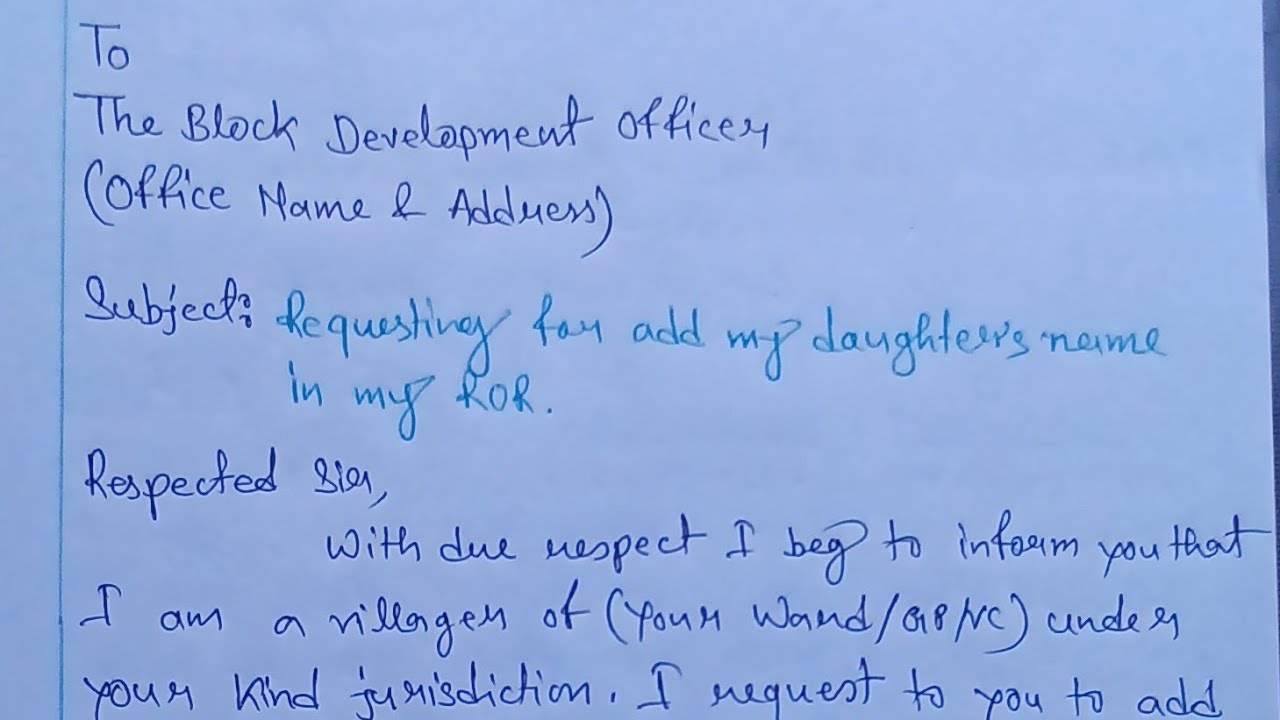 To
The Block Development Officer
(Office Name & Address)
Subject: Requesting for add my daughter's name
in my ROR.
Respected Sir,
With due respect I beg to inform you that
I am a villager of (Your Ward/GP/VC) under
your kind jurisdiction. I request to you to add